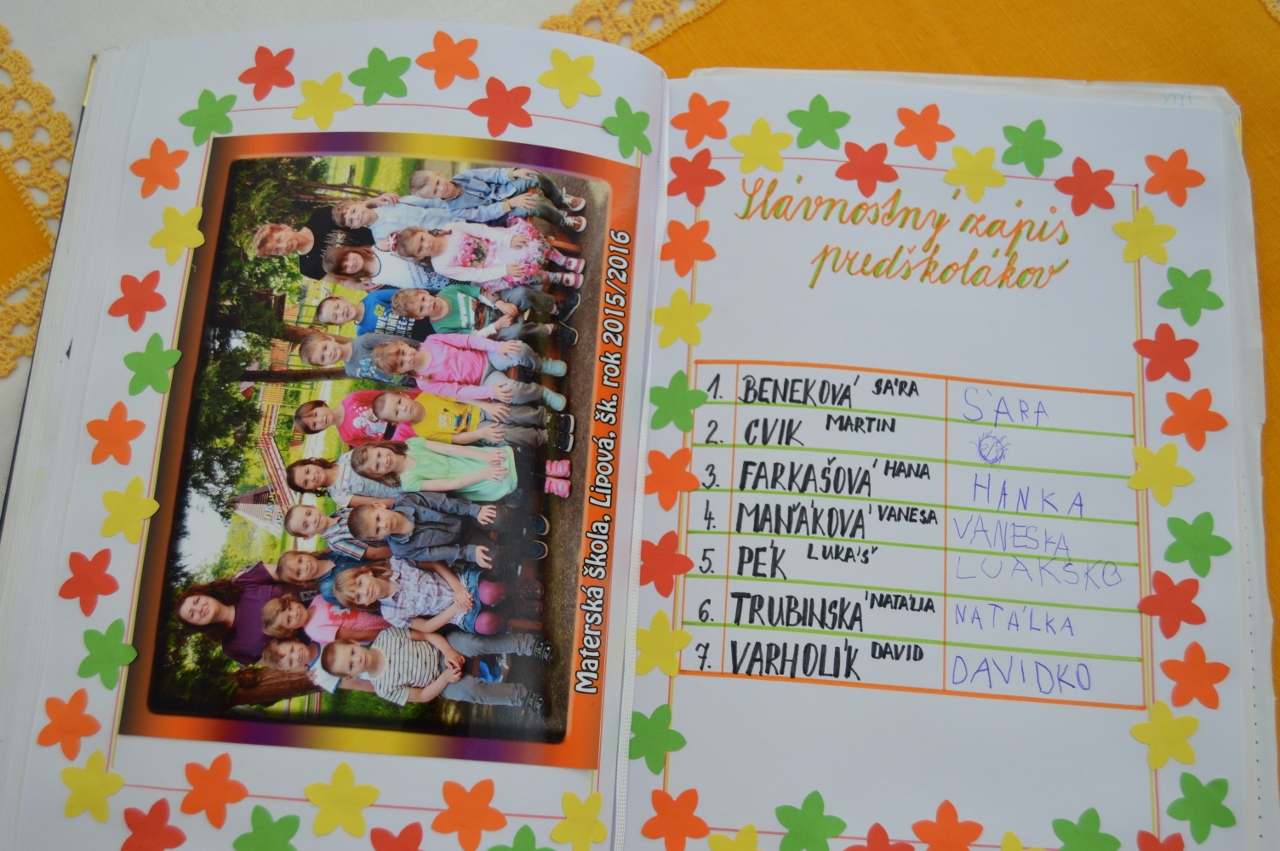 Materská škola, Lipová, šk. rok 2015/2016
Slávnostný zápis
predškolákov
1. BENEKOVÁ SÁRA SÁRA
2. CVIK MARTIN
3. FARKAŠOVÁ HANA HANKA
4. MAŇÁKOVÁ VANESA VANESKA
5. PÉK LUKÁŠ LUAKSKO
6. TRUBINSKÁ NATÁLIA NATÁLKA
7. VARHOLÍK DAVID DAVIDKO